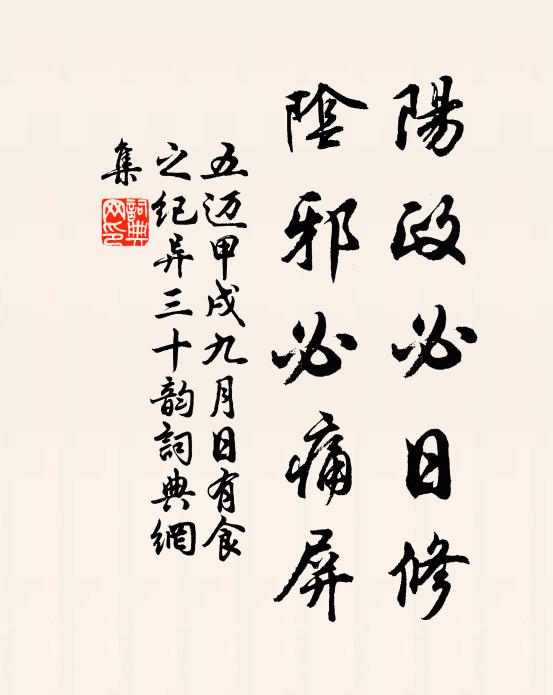 陽政必日修
陰邪必痛屏
五迈甲戌九月日有食
之纪异三十韵詞典網
集
詞典
网印